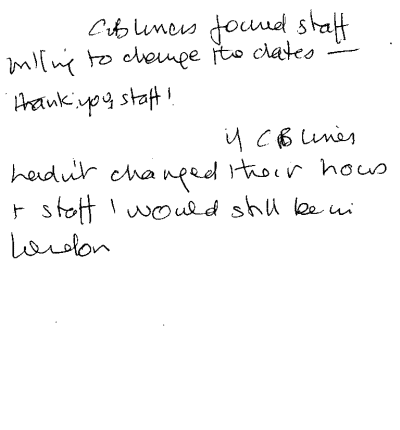 CB Liners found staff
willing to change the dates —
Thank you staff!
if CB Lines
hadn't changed their hours
+ staff I would still be in
London